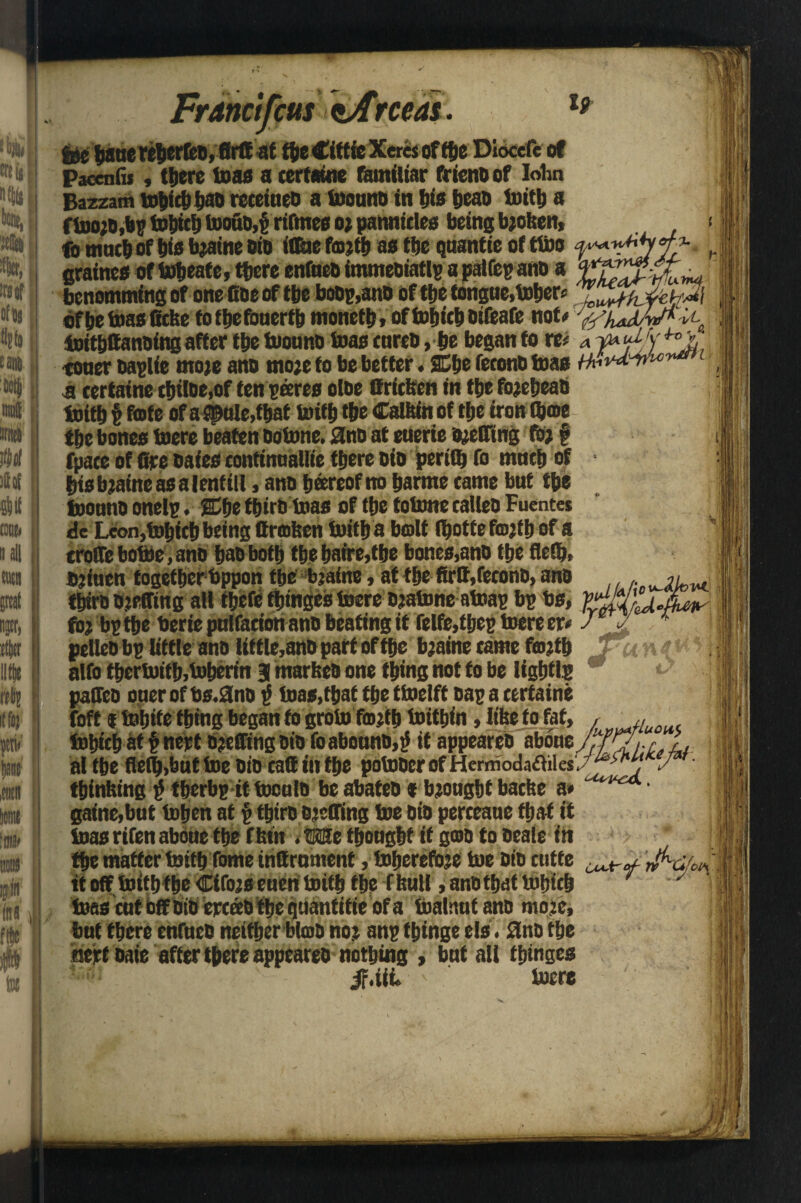 Francifcus Arceas. 19
we haue reherfed, firſt at the Cittie Xeres of the Diocefe of
Pacenfis, there was a certaine familiar friend of Iohn
Bazzam which had receiued a wound in his head with a
ſwoꝛd, by which woũd, ẏ rifmes oꝛ pannicles being bꝛoken,
ſo much of his bꝛaine did iſſue fooꝛth as the quantie of two
graines of wheate, there enſued immediatly a palſey and a
benomming of one ſide of the body, and of the tongue, wher⸗
of he was ſicke to the fouerth moneth, of which diſeaſe not⸗
withſtanding after the wound was cured, he began to re⸗
couer daylie moꝛe and moꝛe to be better. The ſecond was
a certaine childe, of ten yeeres olde ſtricken in the foꝛehead
with ẏ foote of a Mule, that with the Calkin of the iron ſhooe
the bones were beaten downe. And at euerie dꝛeſſing foꝛ ẏ
ſpace of ſixe daies continuallie there did periſh ſo much of
his bꝛaine as a lentill, and heereof no harme came but the
wound onely. The third was of the towne called Fuentes
de Leon, which being ſtrooken with a boolt ſhotte fooꝛth of a
croſſe bowe, and had both the haire, the bones, and the fleſh,
dꝛiuen together vppon the bꝛaine, at the firſt, ſecond, and
third dꝛeſſing all theſe thinges were dꝛawne away by vs,
foꝛ by the verie pulſacion and beating it ſelfe, they were er⸗
pelled by little and little, and part of the bꝛaine came fooꝛth
alſo therwith, wherin I marked one thing not to be lightly
paſſed ouer of vs. And ẏ was, that the twelft day a certaine
ſoft & white thing began to grow fooꝛth within, like to fat,
which at ẏ next dꝛeſſing did ſo abound, ẏ it appeared aboue
al the fleſh, but we did caſt in the powder of Hermodactiles
thinking ẏ therby it would be abated & bꝛought backe a⸗
gaine, but when at ẏ third dꝛeſſing we did perceaue that it
was riſen aboue the ſkin. We thought it good to deale in
the matter with ſome inſtrument, wherefoꝛe we did cutte
it off with the Ciſoꝛs euen with the ſkull, and that which
was cut off did exceed the quantitie of a walnut and moꝛe,
but there enſued neither blood noꝛ any thinge els. And the
next daie after there appeared nothing, but all thinges
F.iii. were
quantity of 2
grains of
wheat
a
Fungus
superfluous
flesh like fat.
cut off